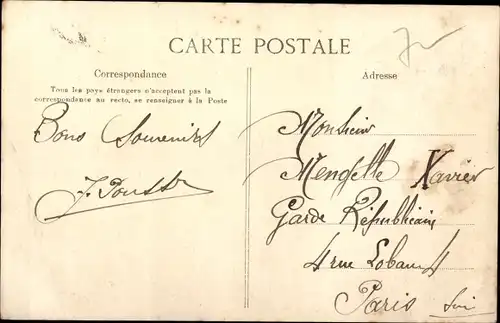 CARTE POSTALE
Correspondance
Tous les pays étrangers n'acceptent pas la
correspondance au recto, se renseigner à la Poste
Bons Souvenirs
Adresse
Monsieur
Xavier
Garde Républicain
4 rue Lobau 4
Paris